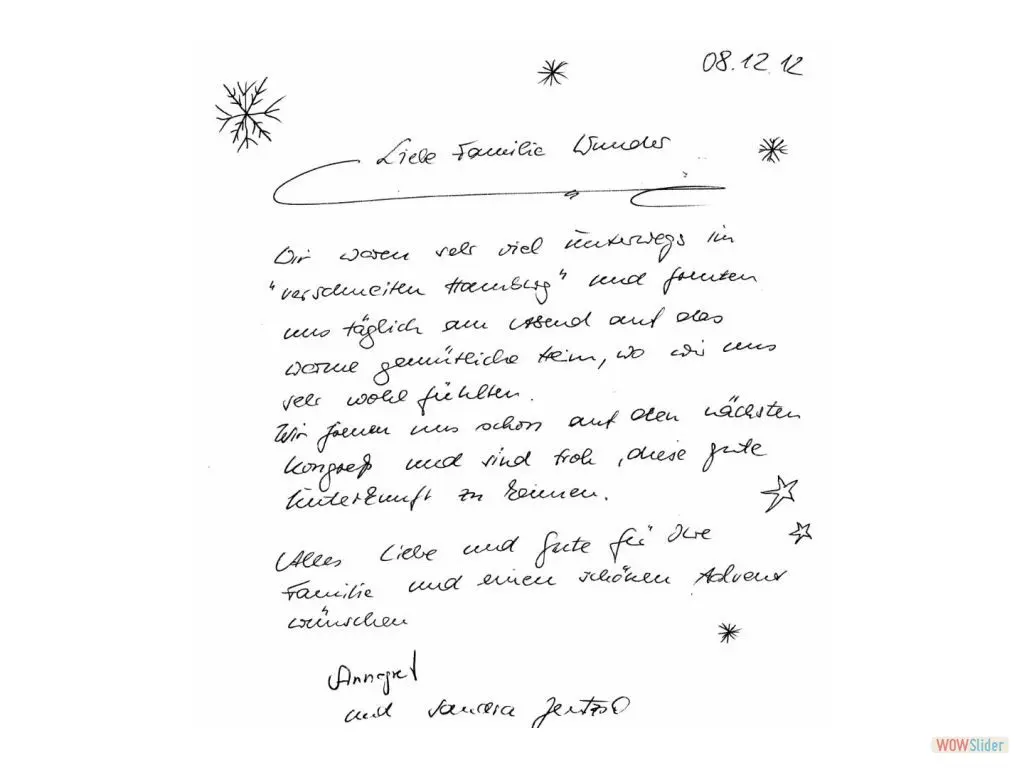 08.12.12
Liebe Familie Wunder
Wir waren sehr viel Unterwegs im
"verschneiten Hamburg" und freuten
uns täglich am Abend auf das
warme gemütliche Heim, wo wir uns
sehr wohl fühlten.
Wir freuen uns schon auf den nächsten
Kongreß und sind froh, diese gute
Unterkunft zu kennen.
Alles Liebe und Gute für Ihre
Familie und einen schönen Advent
wünschen
Annegret
und Sandra
WOWSlider